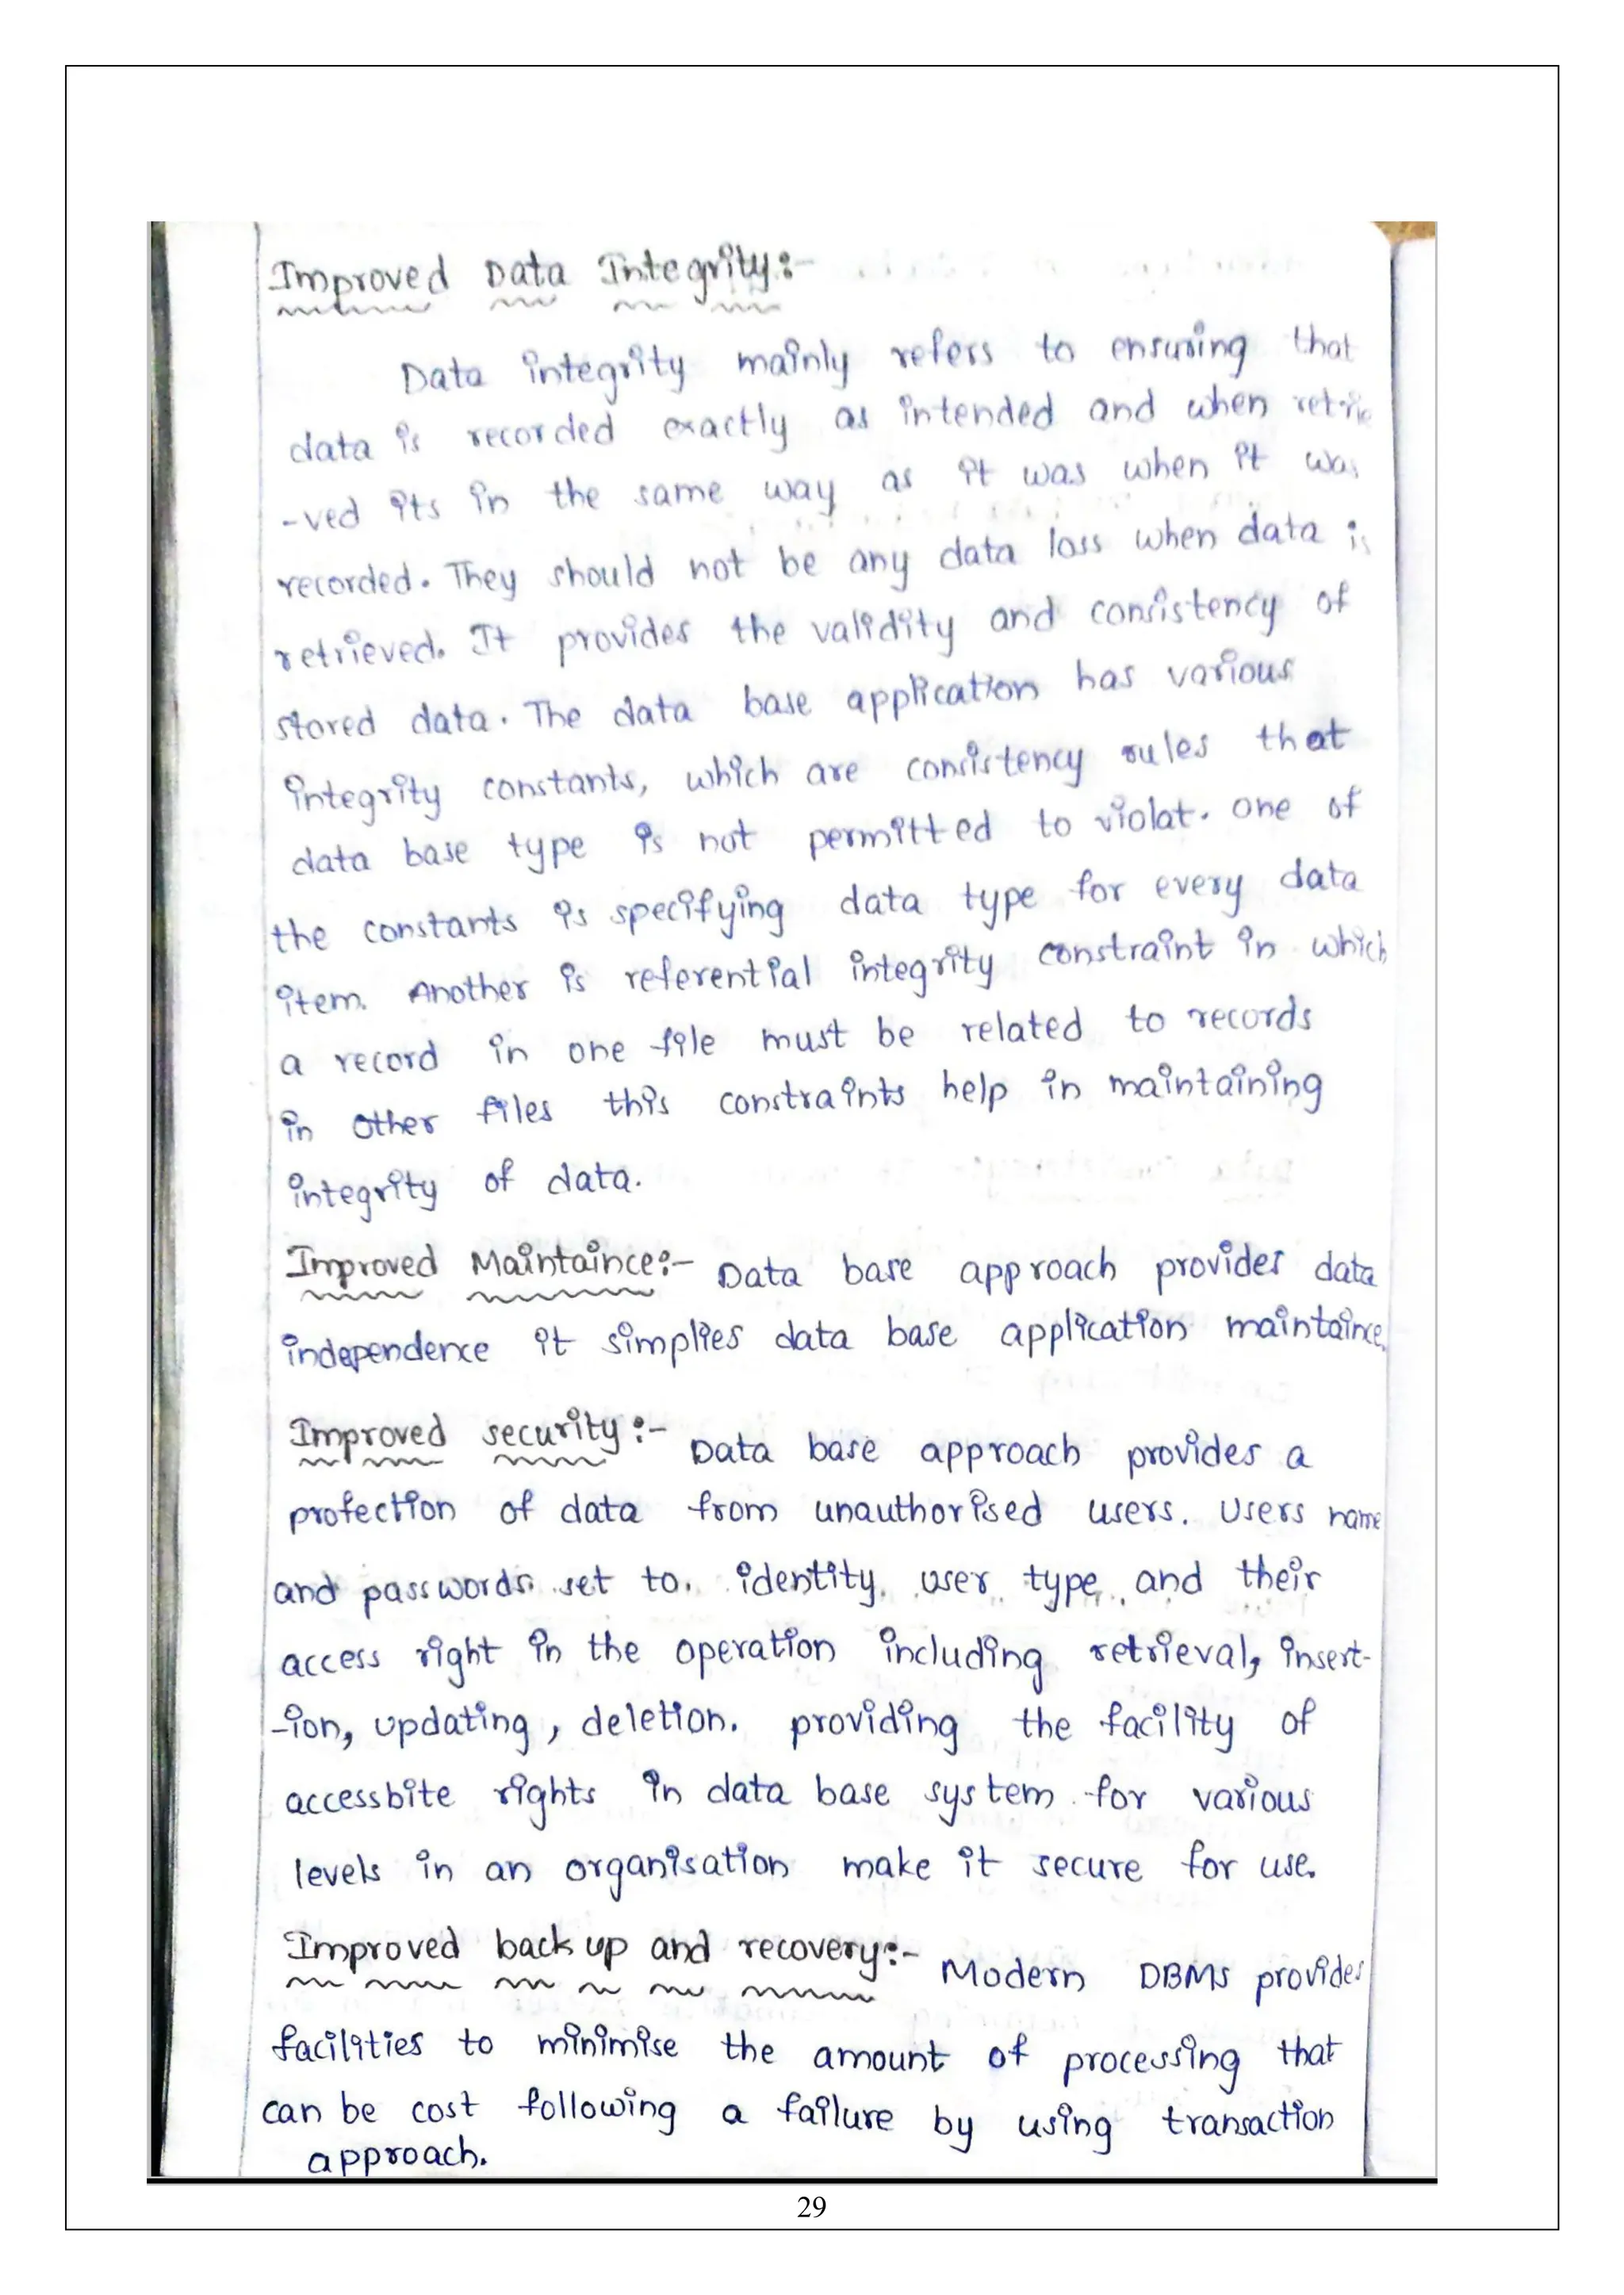 Improved Data Integrity:-
Data integrity mainly refers to ensuring that
data is recorded exactly as intended and when retrie
-ved its in the same way as it was when it was
recorded. They should not be any data loss when data is
retrieved. It provides the validity and consistency of
stored data. The data base application has various
integrity constants, which are consistency rules that
data base type is not permitted to violat. one of
the constants is specifying data type for every data
item. Another is referential integrity constraint in which
a record in one file must be related to records
in other files this constraints help in maintaining
integrity of data.
Improved Maintaince:- Data base approach provides data
independence it simplies data base application maintaince.
Improved security:- Data base approach provides a
protection of data from unauthorised users. Users name
and passwords set to. identity user type and their
access right in the operation including retrieval, insert-
-ion, updating, deletion. providing the facility of
accessbite rights in data base system for various
levels in an organisation make it secure for use.
Improved back up and recovery:- Modern DBMS provides
facilities to minimise the amount of processing that
can be cost following a failure by using transaction
approach.
29